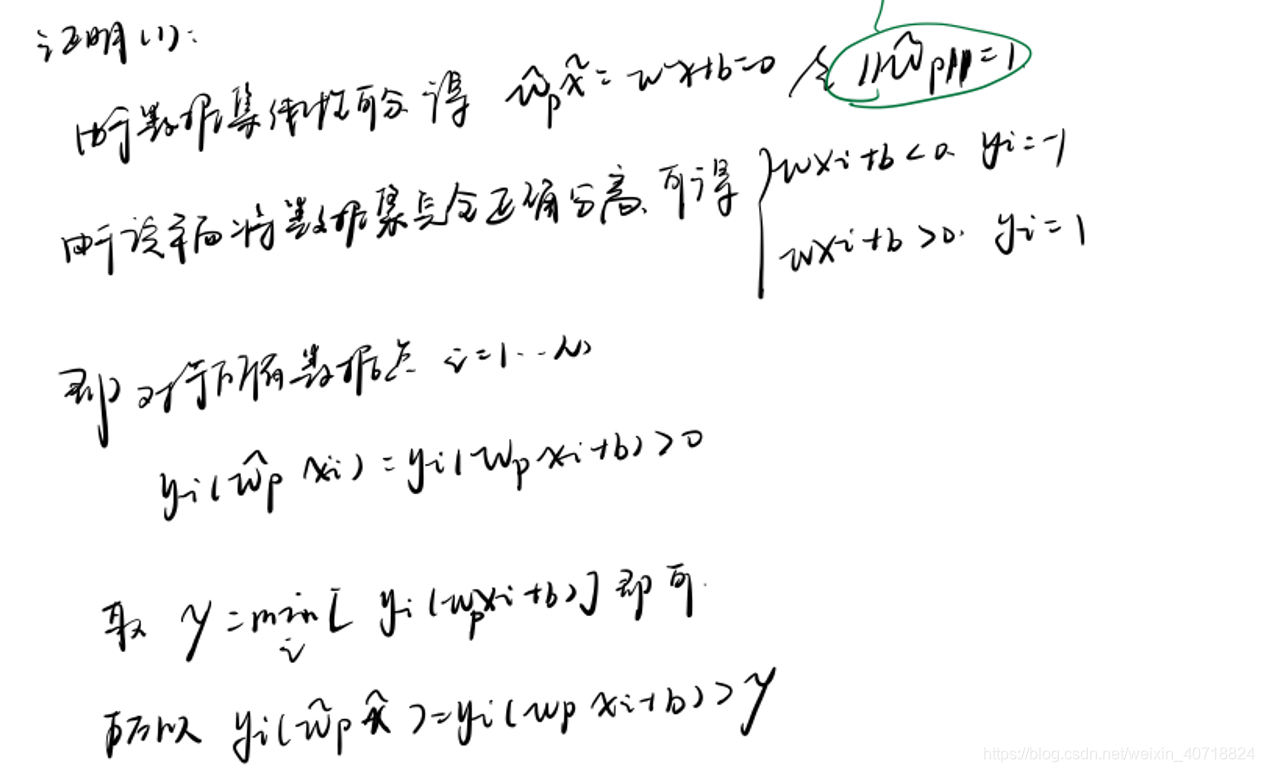 证明(1):
由于数据集线性可分 得 ŵₚx̂ = w x+b=0 令 ||ŵₚ||=1
由于该平面将数据集完全正确分离、可得 { wxi+b<0. yi=-1
wxi+b>0. yi=1
即对于所有数据点 i=1...N
yi(ŵₚ xi) = yi(wₚxi+b)>0
取 γ = min_i [ yi(wₚxi+b)] 即可.
所以 yi(ŵₚx̂)=yi(wₚ xi+b)>γ
https://blog.csdn.net/weixin_40718824